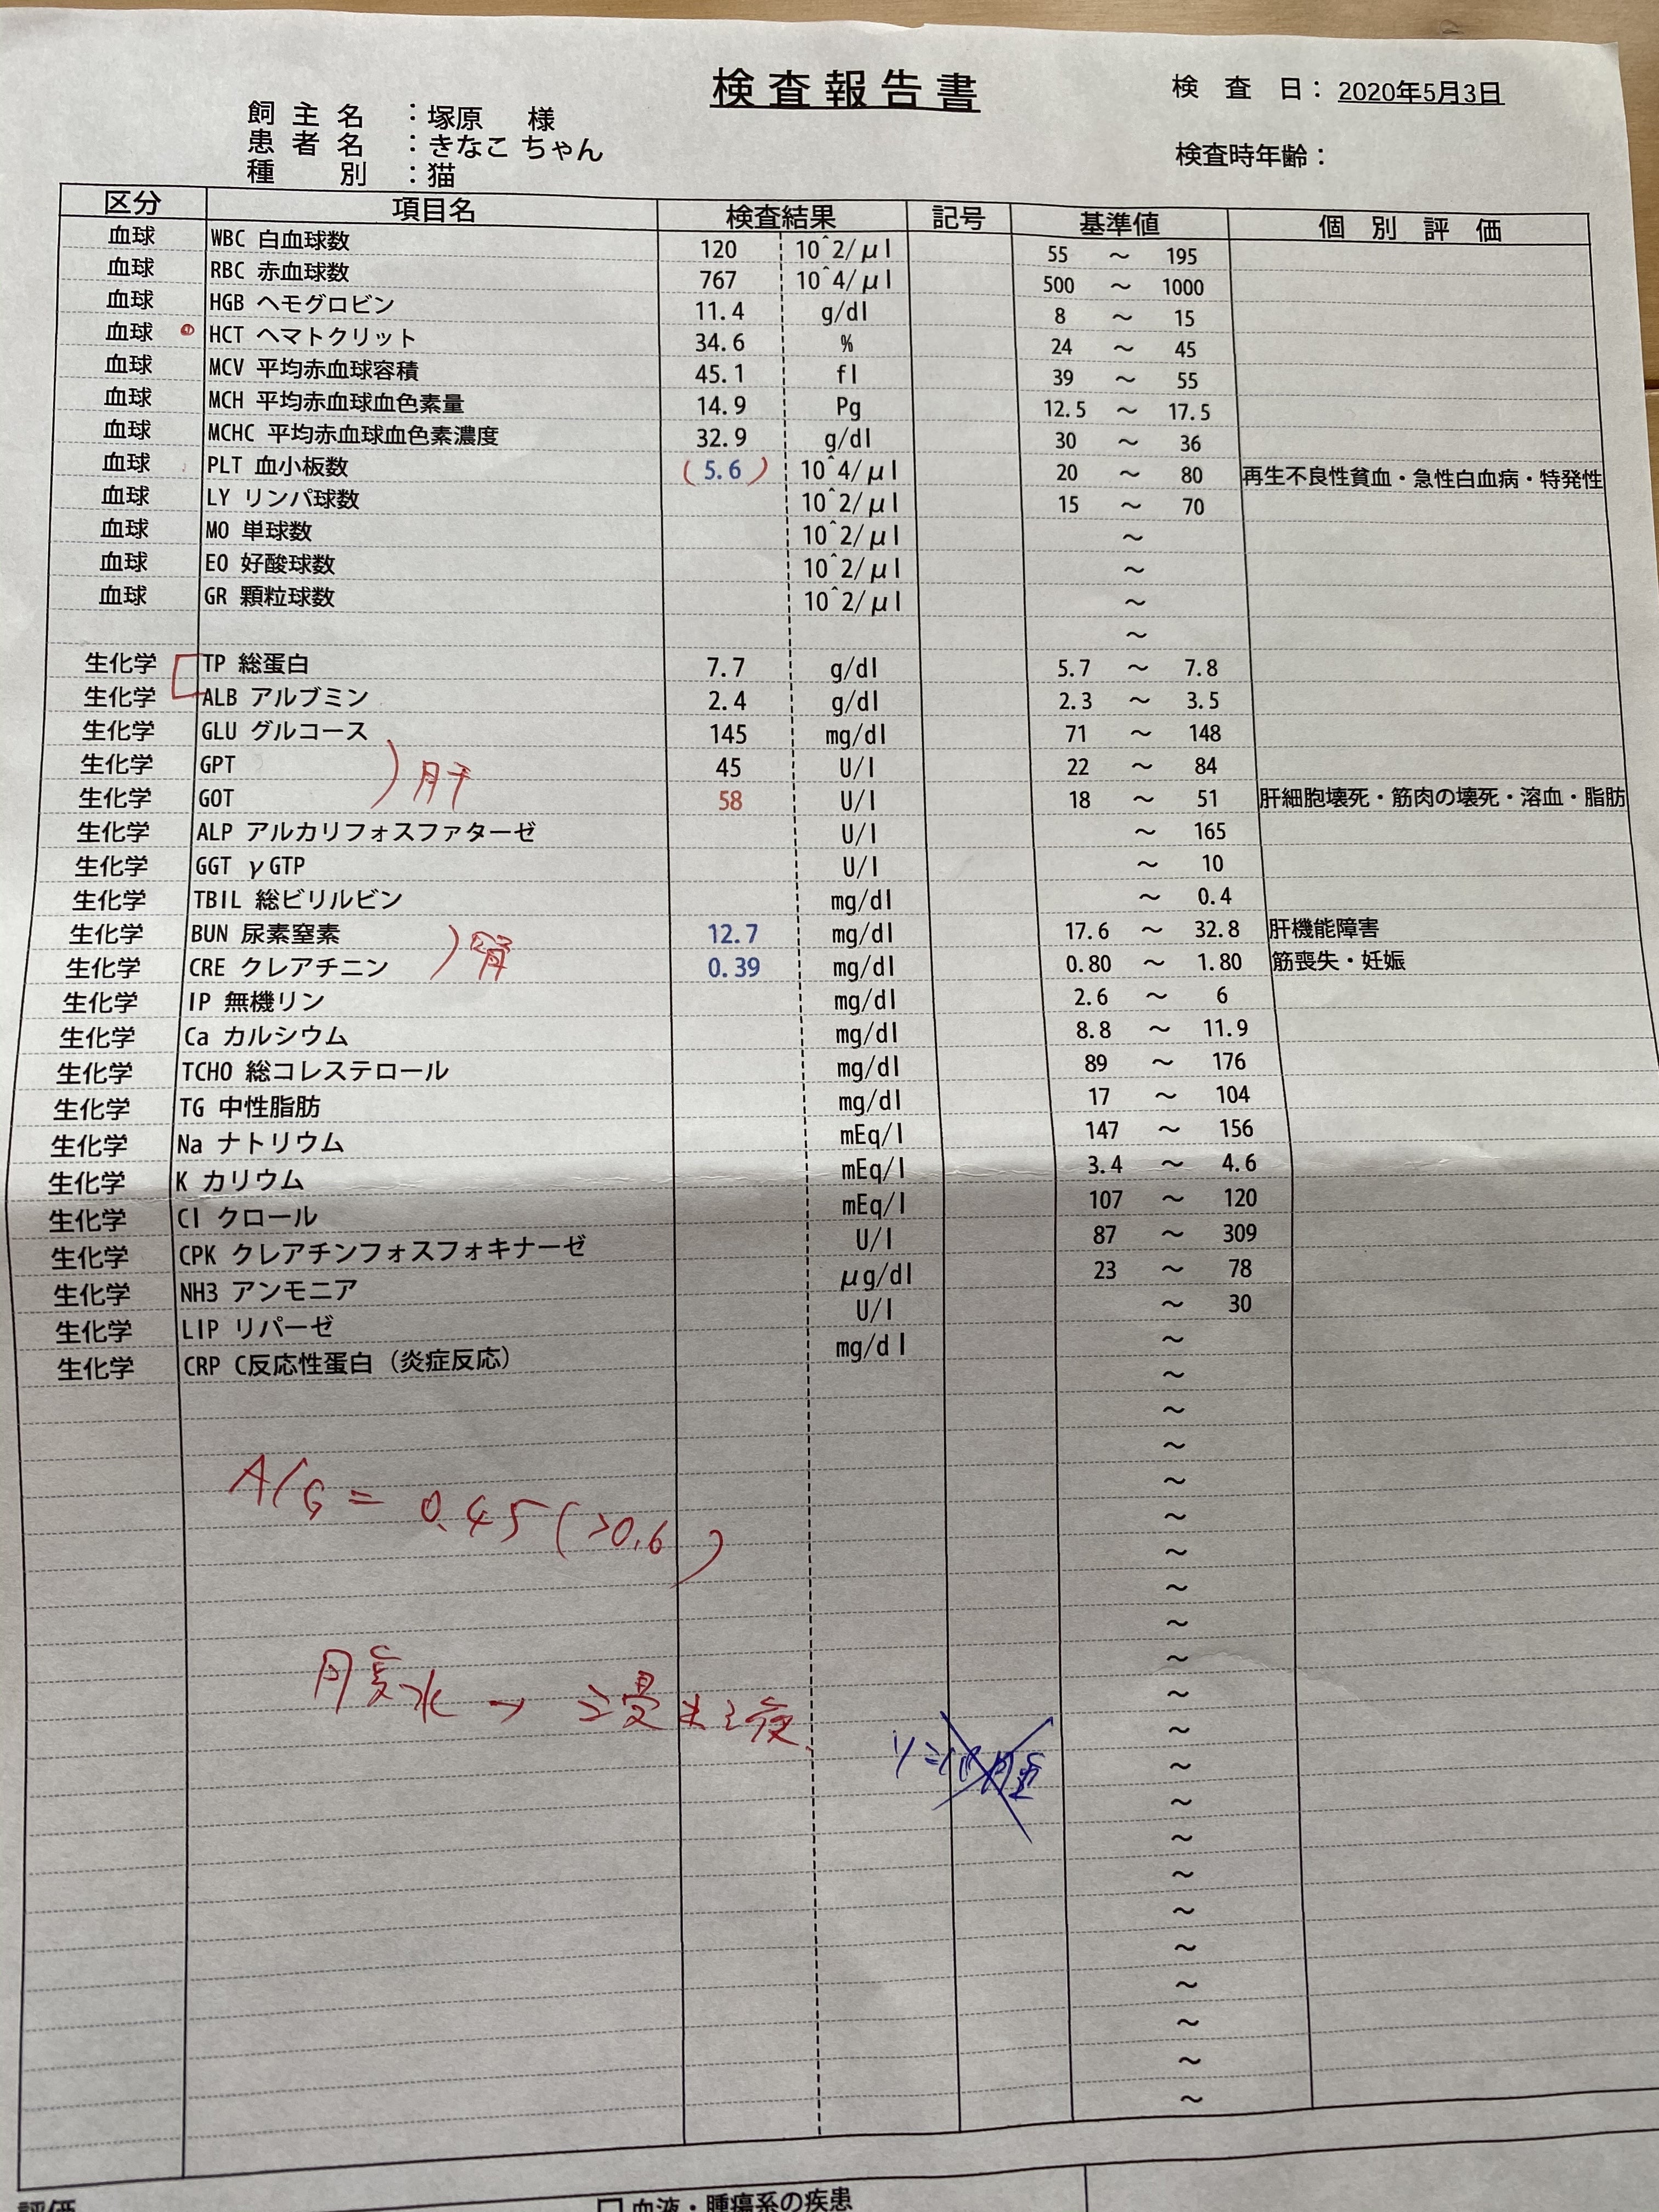 検査報告書
検査日：2020年5月3日
飼主名：塚原 様
患者名：きなこ ちゃん
検査時年齢：
種別：猫
区分 項目名 検査結果 記号 基準値 個別評価
血球 WBC 白血球数 120 10^2/μl 55 ～ 195
血球 RBC 赤血球数 767 10^4/μl 500 ～ 1000
血球 HGB ヘモグロビン 11.4 g/dl 8 ～ 15
血球 HCT ヘマトクリット 34.6 % 24 ～ 45
血球 MCV 平均赤血球容積 45.1 fl 39 ～ 55
血球 MCH 平均赤血球血色素量 14.9 Pg 12.5 ～ 17.5
血球 MCHC 平均赤血球血色素濃度 32.9 g/dl 30 ～ 36
血球 PLT 血小板数 (5.6) 10^4/μl 20 ～ 80 再生不良性貧血・急性白血病・特発性
血球 LY リンパ球数 10^2/μl 15 ～ 70
血球 MO 単球数 10^2/μl ～
血球 EO 好酸球数 10^2/μl ～
血球 GR 顆粒球数 10^2/μl ～
～
生化学 TP 総蛋白 7.7 g/dl 5.7 ～ 7.8
生化学 ALB アルブミン 2.4 g/dl 2.3 ～ 3.5
生化学 GLU グルコース 145 mg/dl 71 ～ 148
生化学 GPT 45 U/l 22 ～ 84
肝
生化学 GOT 58 U/l 18 ～ 51 肝細胞壊死・筋肉の壊死・溶血・脂肪
生化学 ALP アルカリフォスファターゼ U/l ～ 165
生化学 GGT γGTP U/l ～ 10
生化学 TBIL 総ビリルビン mg/dl ～ 0.4
生化学 BUN 尿素窒素 12.7 mg/dl 17.6 ～ 32.8 肝機能障害
腎
生化学 CRE クレアチニン 0.39 mg/dl 0.80 ～ 1.80 筋喪失・妊娠
生化学 IP 無機リン mg/dl 2.6 ～ 6
生化学 Ca カルシウム mg/dl 8.8 ～ 11.9
生化学 TCHO 総コレステロール mg/dl 89 ～ 176
生化学 TG 中性脂肪 mg/dl 17 ～ 104
生化学 Na ナトリウム mEq/l 147 ～ 156
生化学 K カリウム mEq/l 3.4 ～ 4.6
生化学 Cl クロール mEq/l 107 ～ 120
生化学 CPK クレアチンフォスフォキナーゼ U/l 87 ～ 309
生化学 NH3 アンモニア μg/dl 23 ～ 78
生化学 LIP リパーゼ U/l ～ 30
生化学 CRP C反応性蛋白（炎症反応） mg/dl ～
～
～
～
～
A/G = 0.45 (>0.6)
～
～
～
～
～
腹水 → 浸出液
～
～
～
～
～
～
～
～
～
～
～
～
評価
血液・腫瘍系の疾患